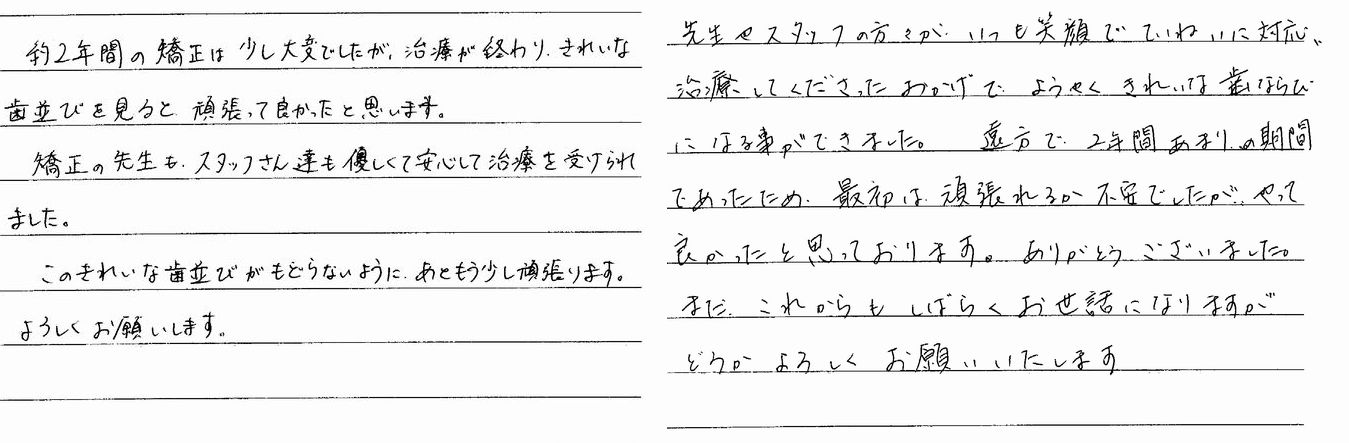 約2年間の矯正は少し大変でしたが、治療が終わり、きれいな
歯並びを見ると、頑張って良かったと思います。
矯正の先生も、スタッフさん達も優しくて安心して治療を受けられ
ました。
このきれいな歯並びがもどらないように、あともう少し頑張ります。
よろしくお願いします。
先生やスタッフの方々が、いつも笑顔でていねいに対応、
治療してくださったおかげで、ようやくきれいな歯ならび
になる事ができました。 遠方で、2年間あまりの期間
であったため、最初は、頑張れるか不安でしたが、やって
良かったと思っております。ありがとうございました。
まだ、これからもしばらくお世話になりますが
どうかよろしくお願いいたします